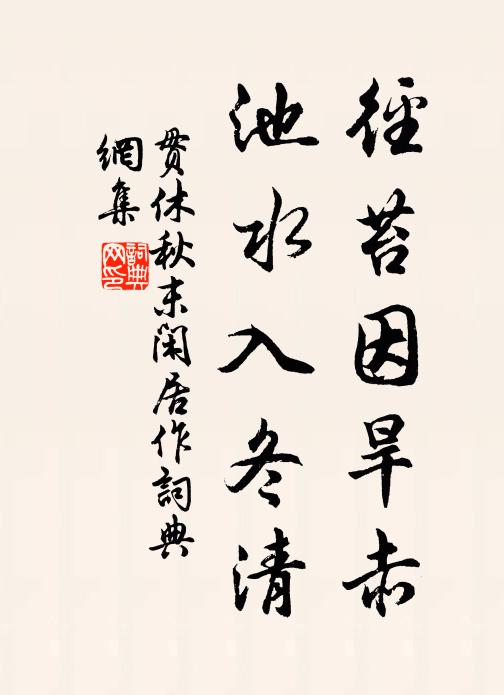 徑苔因旱赤
池水入冬清
貫休秋末閑居作詞典
網集
詞典
網印